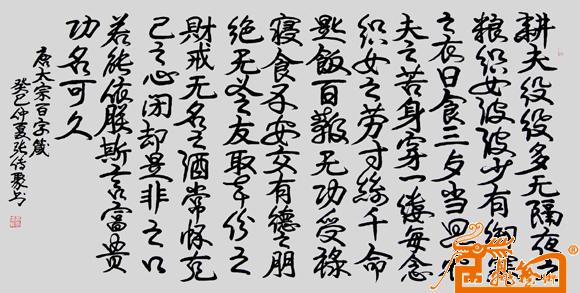 耕夫役役多无隔夜之
粮织女波波少有御寒
之衣日食三夕当思农
夫之苦身穿一缕每念
织女之劳寸丝千命
匙饭百鞭无功受禄
寝食不安交有德之朋
绝无义之友取本份之
财戒无名之酒常怀克
己之心闭却是非之口
若能依朕斯言富贵
功名可久
唐太宗百字箴
癸巳仲夏张传聚书